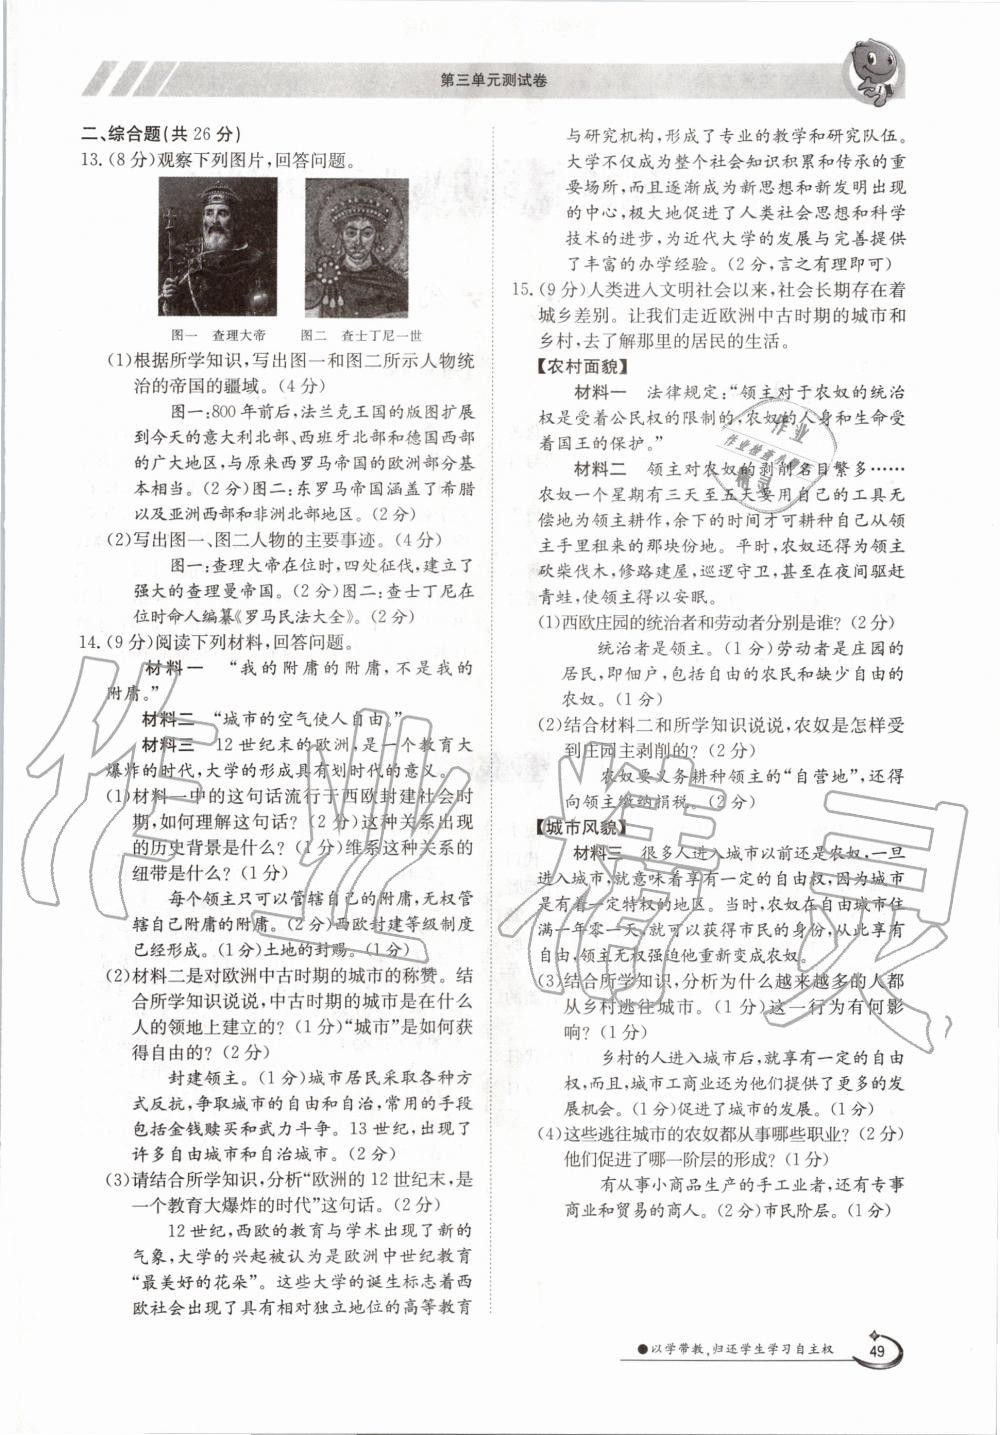 第三单元测试卷
二、综合题(共26分)
13.(8分)观察下列图片,回答问题。
图一　查理大帝　　图二　查士丁尼一世
(1)根据所学知识,写出图一和图二所示人物统
治的帝国的疆域。(4分)
图一:800年前后,法兰克王国的版图扩展
到今天的意大利北部、西班牙北部和德国西部
的广大地区,与原来西罗马帝国的欧洲部分基
本相当。(2分)图二:东罗马帝国涵盖了希腊
以及亚洲西部和非洲北部地区。(2分)
(2)写出图一、图二人物的主要事迹。(4分)
图一:查理大帝在位时,四处征伐,建立了
强大的查理曼帝国。(2分)图二:查士丁尼在
位时命人编纂《罗马民法大全》。(2分)
14.(9分)阅读下列材料,回答问题。
材料一　“我的附庸的附庸,不是我的
附庸。”
材料二　“城市的空气使人自由。”
材料三　12世纪末的欧洲,是一个教育大
爆炸的时代,大学的形成具有划时代的意义。
(1)材料一中的这句话流行于西欧封建社会时
期,如何理解这句话?(2分)这种关系出现
的历史背景是什么?(1分)维系这种关系的
纽带是什么?(1分)
每个领主只可以管辖自己的附庸,无权管
辖自己附庸的附庸。(2分)西欧封建等级制度
已经形成。(1分)土地的封赐。(1分)
(2)材料二是对欧洲中古时期的城市的称赞。结
合所学知识说说,中古时期的城市是在什么
人的领地上建立的?(1分)“城市”是如何获
得自由的?(2分)
封建领主。(1分)城市居民采取各种方
式反抗,争取城市的自由和自治,常用的手段
包括金钱赎买和武力斗争。13世纪,出现了
许多自由城市和自治城市。(2分)
(3)请结合所学知识,分析“欧洲的12世纪末,是
一个教育大爆炸的时代”这句话。(2分)
12世纪,西欧的教育与学术出现了新的
气象,大学的兴起被认为是欧洲中世纪教育
“最美好的花朵”。这些大学的诞生标志着西
欧社会出现了具有相对独立地位的高等教育
与研究机构,形成了专业的教学和研究队伍。
大学不仅成为整个社会知识积累和传承的重
要场所,而且逐渐成为新思想和新发明出现
的中心,极大地促进了人类社会思想和科学
技术的进步,为近代大学的发展与完善提供
了丰富的办学经验。(2分,言之有理即可)
15.(9分)人类进入文明社会以来,社会长期存在着
城乡差别。让我们走近欧洲中古时期的城市和
乡村,去了解那里的居民的生活。
【农村面貌】
材料一　法律规定:“领主对于农奴的统治
权是受着公民权的限制的,农奴的人身和生命受
着国王的保护。”
材料二　领主对农奴的剥削名目繁多……
农奴一个星期有三天至五天要用自己的工具无
偿地为领主耕作,余下的时间才可耕种自己从领
主手里租来的那块份地。平时,农奴还要为领主
砍柴伐木,修路建屋,巡逻守卫,甚至在夜间驱赶
青蛙,使领主得以安眠。
(1)西欧庄园的统治者和劳动者分别是谁?(2分)
统治者是领主。(1分)劳动者是庄园的
居民,即佃户,包括自由的农民和缺少自由的
农奴。(1分)
(2)结合材料二和所学知识说说,农奴是怎样受
到庄园主剥削的?(2分)
农奴要义务耕种领主的“自营地”,还得
向领主缴纳捐税。(2分)
【城市风貌】
材料三　很多人进入城市以前还是农奴,一旦
进入城市,就意味着享有一定的自由权,因为城市
是有着一定特权的地区。当时,农奴在自由城市住
满一年零一天,就可以获得市民的身份,从此自
由,领主无权强迫他重新变成农奴。
(3)结合所学知识,分析为什么越来越多的人都
从乡村逃往城市。(1分)这一行为有何影
响?(1分)
乡村的人进入城市后,就享有一定的自由
权,而且,城市工商业还为他们提供了更多的发
展机会。(1分)促进了城市的发展。(1分)
(4)这些逃往城市的农奴都从事哪些职业?(2分)
他们促进了哪一阶层的形成?(1分)
有从事小商品生产的手工业者,还有专事
商业和贸易的商人。(2分)市民阶层。(1分)
作业
作业检查小帮手
精灵
作业精灵
●以学带教,归还学生学习自主权
49